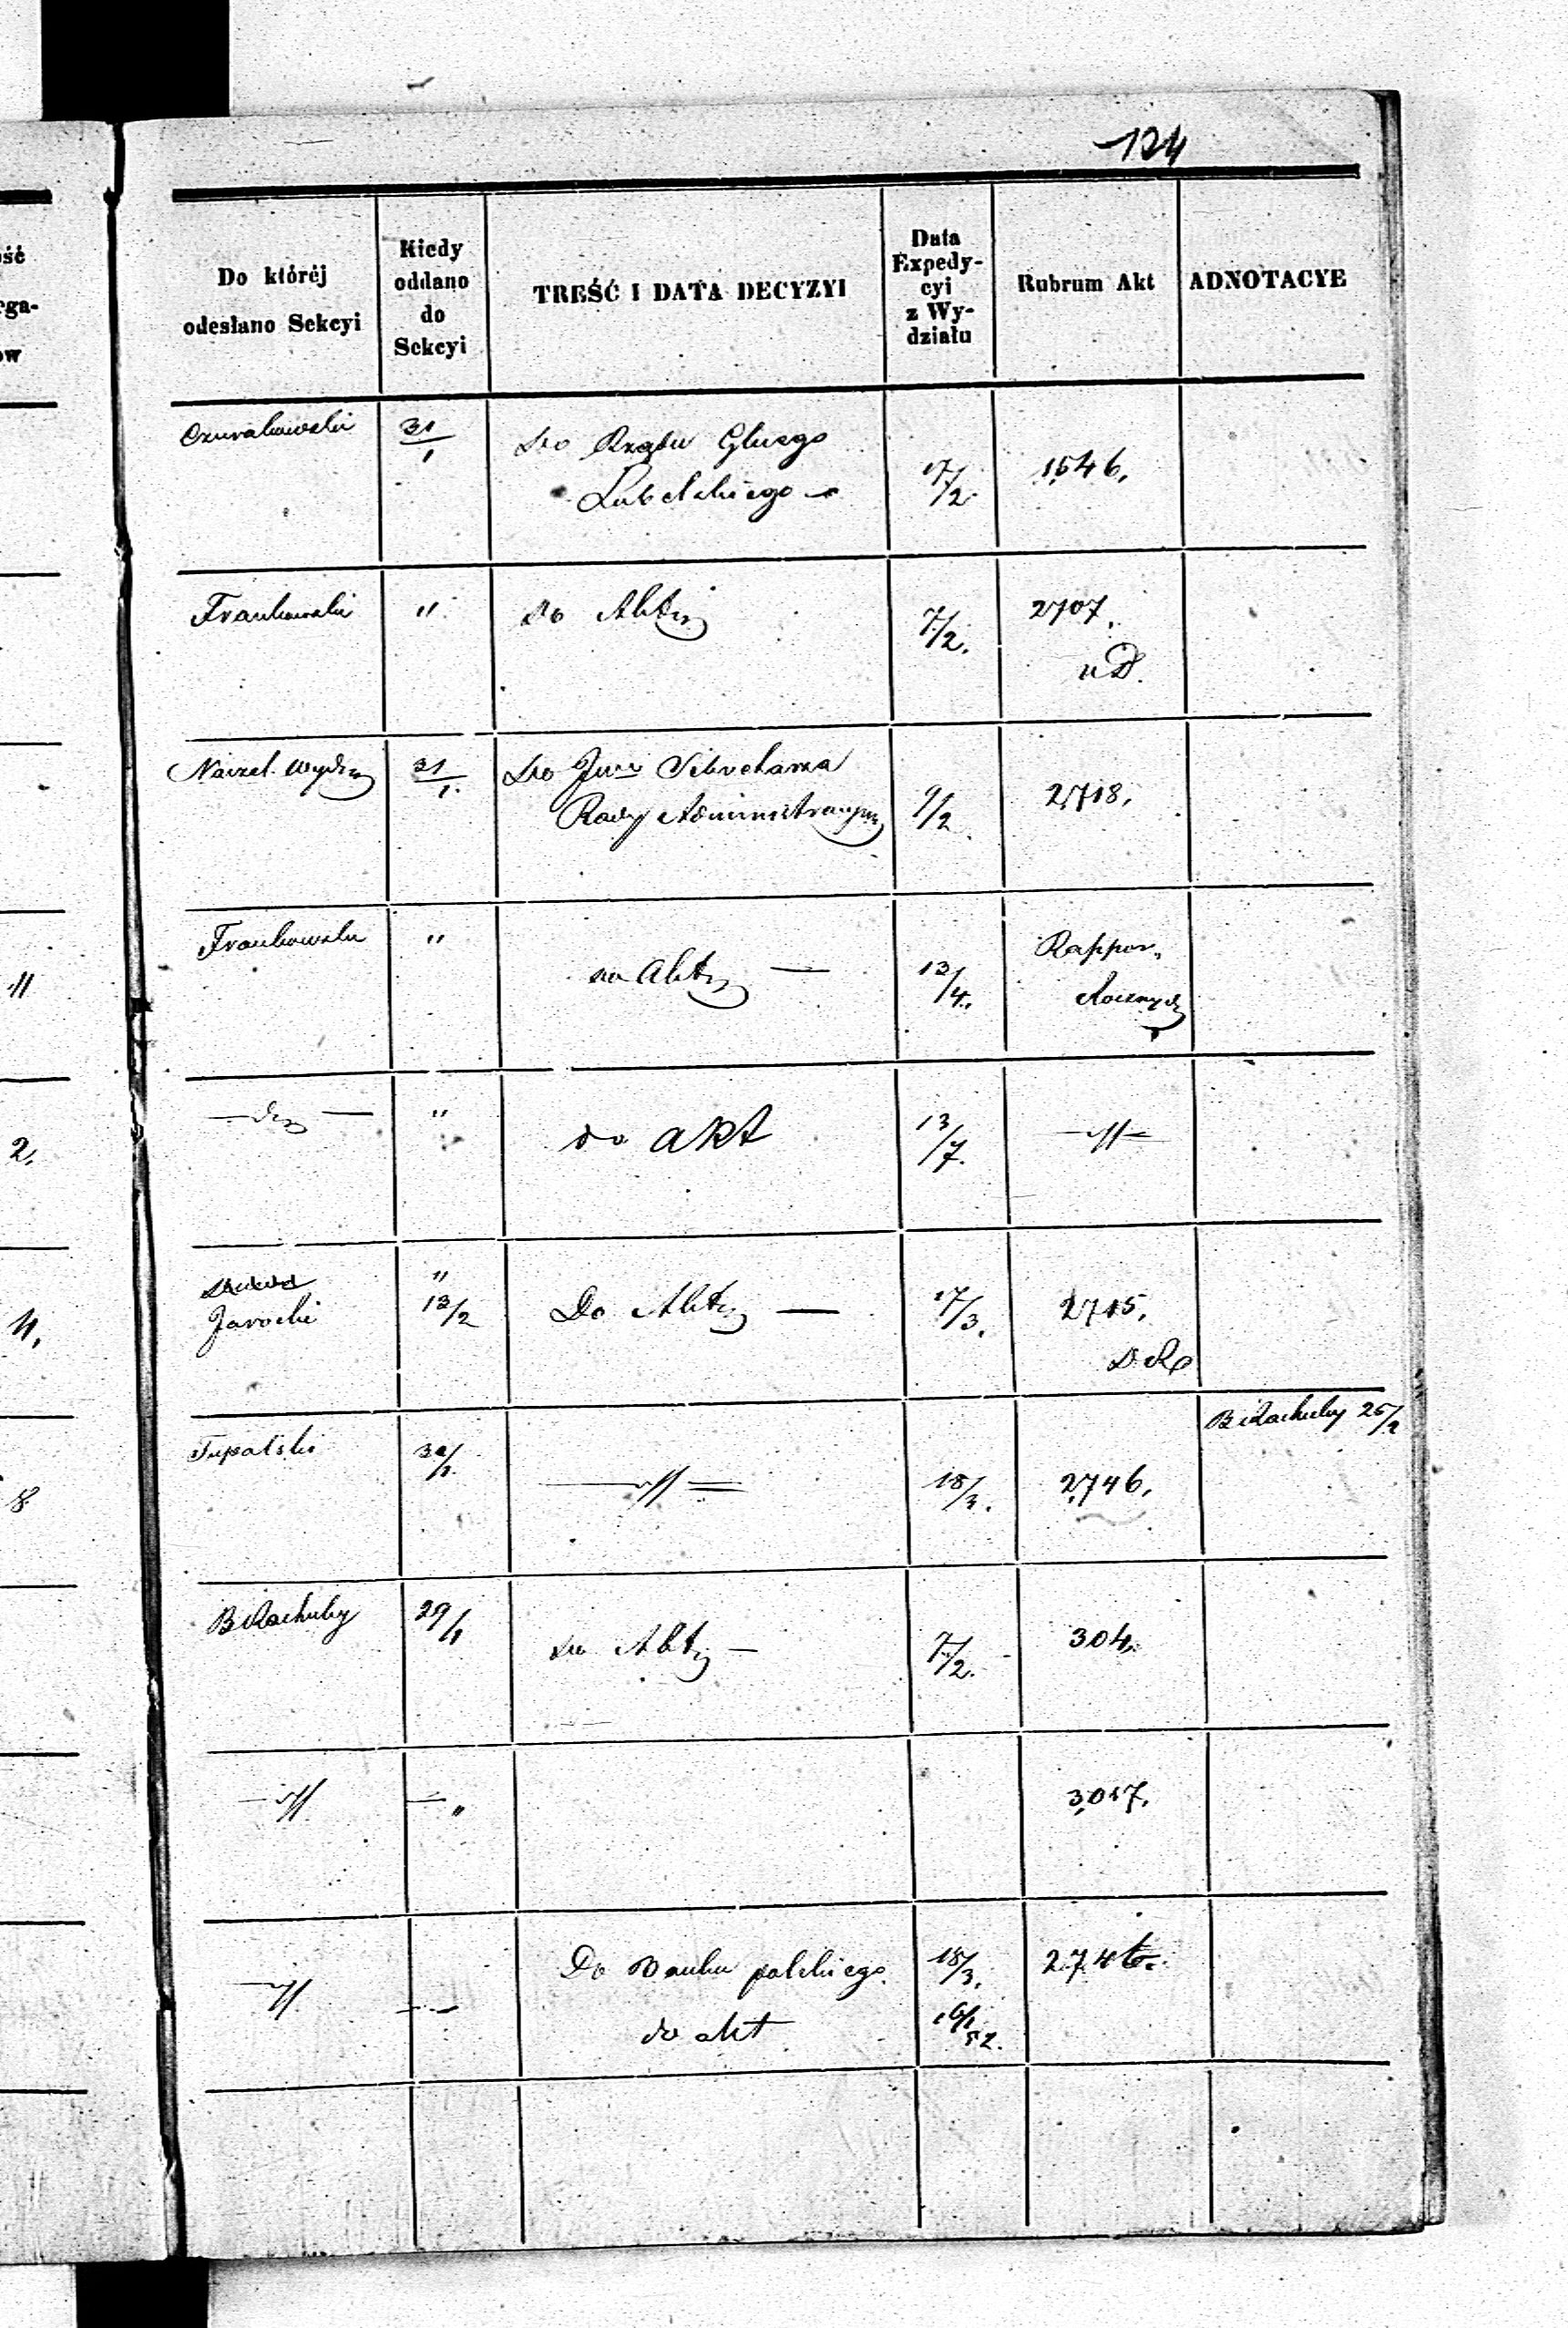 124
Do któréj odesłano Sekcyi
Kiedy oddano do Sekcyi
TREŚĆ I DATA DECYZYI
Data Expedy-cyi z Wy-działu
Rubrum Akt
ADNOTACYE
31/1 Do Rządu Gluego 17/2 1546.
Lubelskiego
Frankowski " Do Akt 7/2. 2707.
Naczel. Wydz 31/1. Do Sekretarza 9/2 2718.
Rady Administracyjn
Frankowski " do Akt — 13/4. Rappor.
Rocznych
— " do akt 13/7. —"—
"
Jarocki 13/2 Do Akt — 17/3. 2715.
B Rachuby 25/2
Tupalski 30/1. —"— 18/3. 2746.
B Rachuby 29/1 do Akt — 7/2. 304.
—"— —" 3017.
—"— Do Banku polskiego 18/3. 274
do akt 16/1 52.
11
2.
4.
8